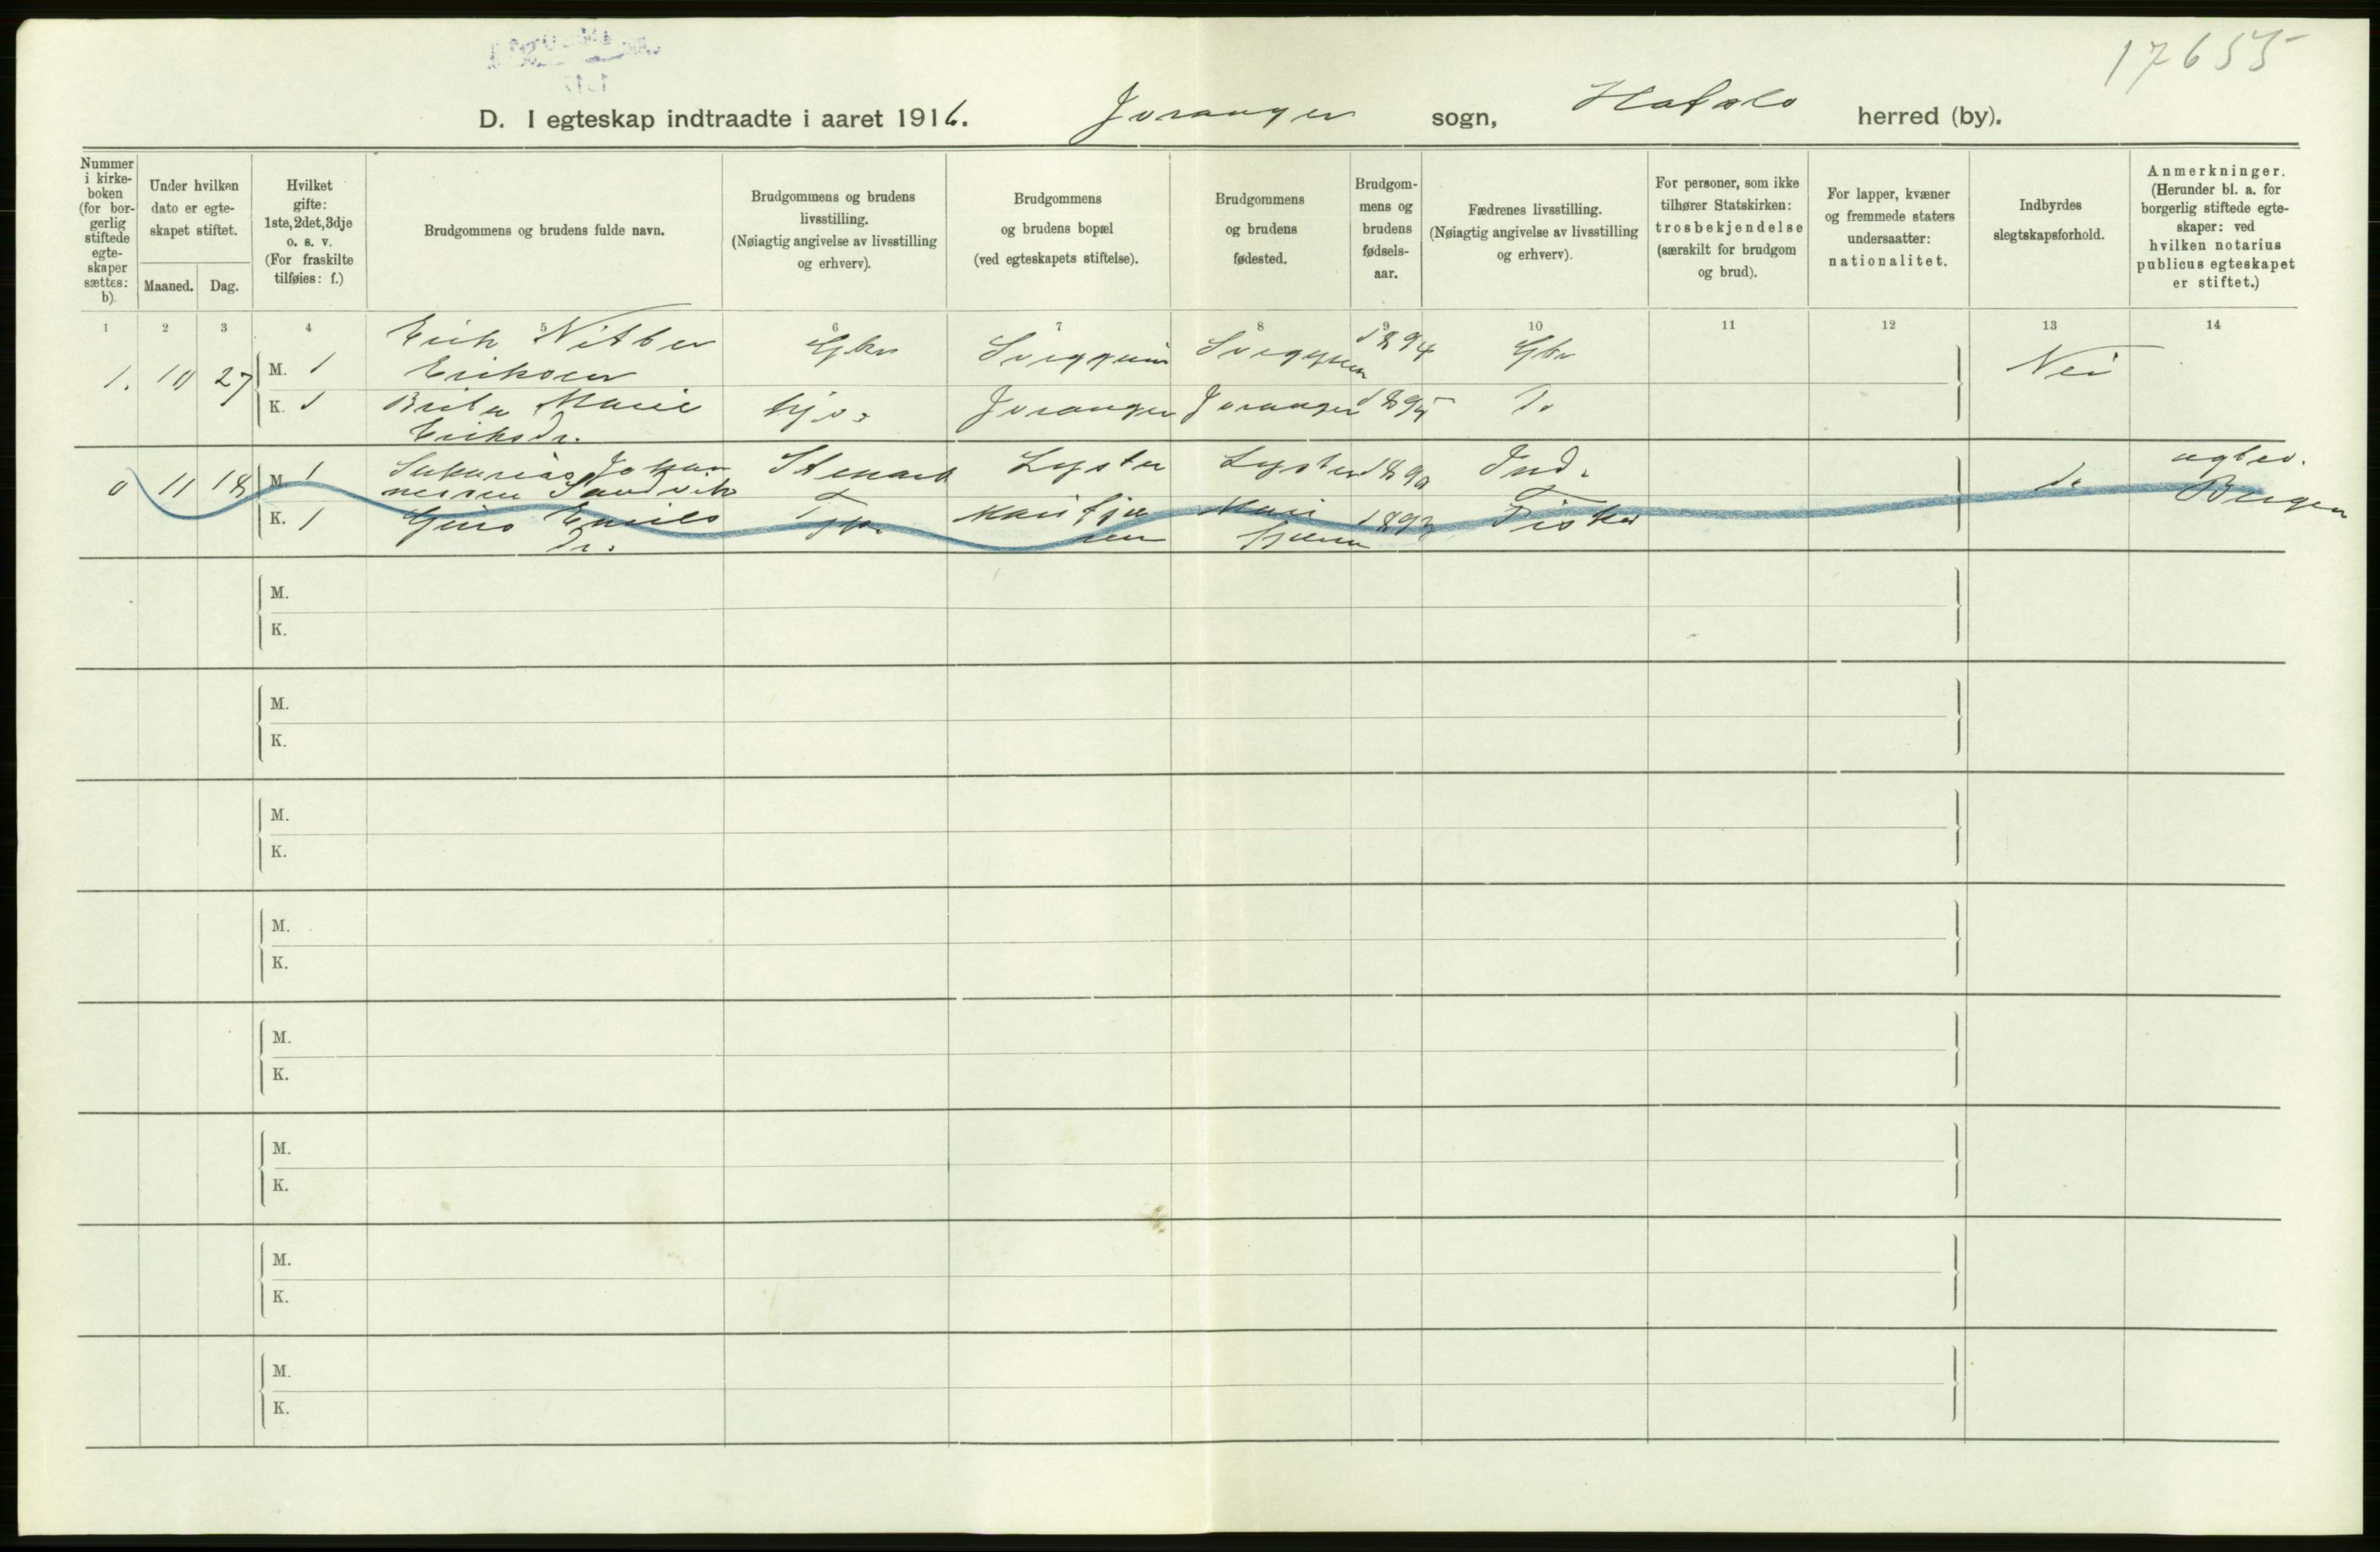 17655
D. I egteskap indtraadte i aaret 1916. Joranger sogn, Hafslo herred (by).
Nummer
i kirke-
boken
(for bor-
gerlig
stiftede
egte-
skaper
sættes:
b).
Under hvilken
dato er egte-
skapet stiftet.
Maaned. Dag.
Hvilket
gifte:
1ste, 2det, 3dje
o. s. v.
(For fraskilte
tilføies: f.)
Brudgommens og brudens fulde navn.
Brudgommens og brudens
livsstilling.
(Nøiagtig angivelse av livsstilling
og erhverv).
Brudgommens
og brudens bopæl
(ved egteskapets stiftelse).
Brudgommens
og brudens
fødested.
Brudgom-
mens og
brudens
fødsels-
aar.
Fædrenes livsstilling.
(Nøiagtig angivelse av livsstilling
og erhverv).
For personer, som ikke
tilhører Statskirken:
trosbekjendelse
(særskilt for brudgom
og brud).
For lapper, kvæner
og fremmede staters
undersaatter:
nationalitet.
Indbyrdes
slegtskapsforhold.
Anmerkninger.
(Herunder bl. a. for
borgerlig stiftede egte-
skaper: ved
hvilken notarius
publicus egteskapet
er stiftet.)
1 2 3 4 5 6 7 8 9 10 11 12 13 14
1. 10 27 M. 1 Erik
Eriksen Gbr 1894 Gbr Nei
K. 1 Brita Marie
Eriksdr. Joranger Joranger 1895 Do
0 11 18 M. 1 Johan
nessen Sandvik Lyster Lyster 1890 Ind. do
Bergen
K. 1 Emils
Dr. Fisker
M.
K.
M.
K.
M.
K.
M.
K.
M.
K.
M.
K.
M.
K.
M.
K.